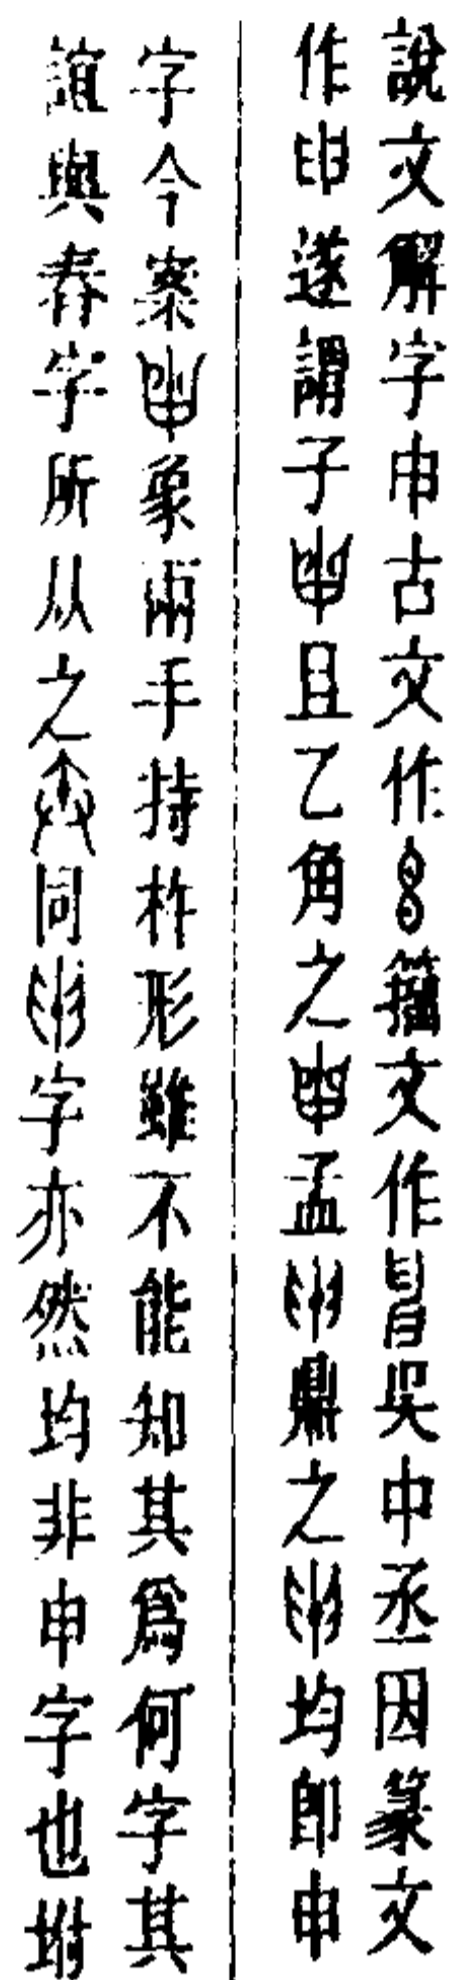 說文解字申古文作籀文作吳中丞因篆文
作遂謂子且乙角之孟鼎之均即申
字今案象兩手持杵形雖不能知其爲何字其
誼與舂字所从之同字亦然均非申字也坿